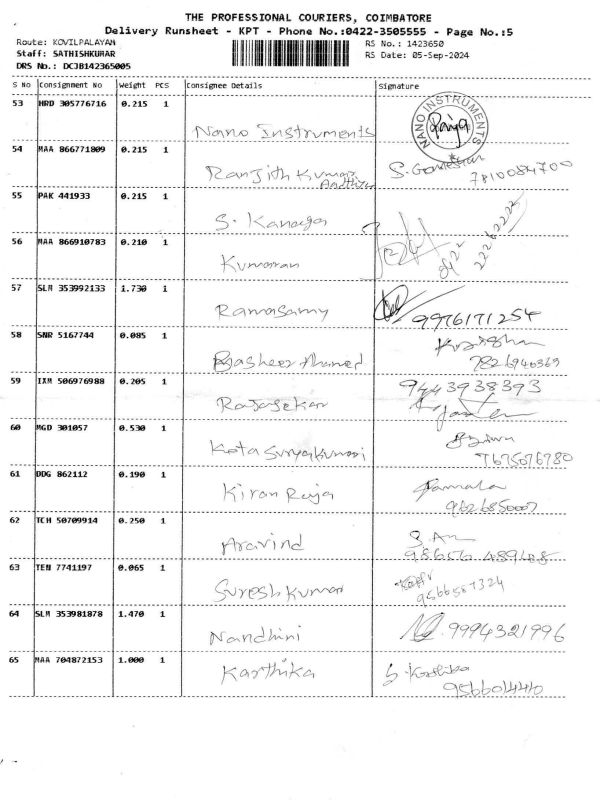 THE PROFESSIONAL COURIERS, COIMBATORE
Delivery Runsheet - KPT - Phone No.:0422-3505555 - Page No.:5
Route: KOVILPALAYAM
Staff: SATHISHKUMAR
DRS No.: DCJB142365005
RS No.: 1423650
RS Date: 05-Sep-2024
S No Consignment No Weight PCS Consignee Details Signature
53 HRD 305776716 0.215 1 Nano Instruments NANO INSTRUMENTS
54 MAA 866771809 0.215 1 Ranjith Kumar 7810084700
55 PAK 441933 0.215 1 S. Kanaga
56 MAA 866910783 0.210 1 Kumaran
57 SLM 353992133 1.730 1 Ramasamy 9976171254
58 SNR 5167744 0.085 1 Basheer Ahamed 7826940369
59 IXM 506976988 0.205 1 Rajasekar 9443938393
60 MGD 301057 0.530 1 Kota Suryakumari
61 DDG 862112 0.190 1 Kiran Raja
62 TCH 50709914 0.250 1 Aravind
63 TEN 7741197 0.065 1 Suresh Kumar
64 SLM 353981878 1.470 1 Nandhini 9994321996
65 MAA 704872153 1.000 1 Karthika